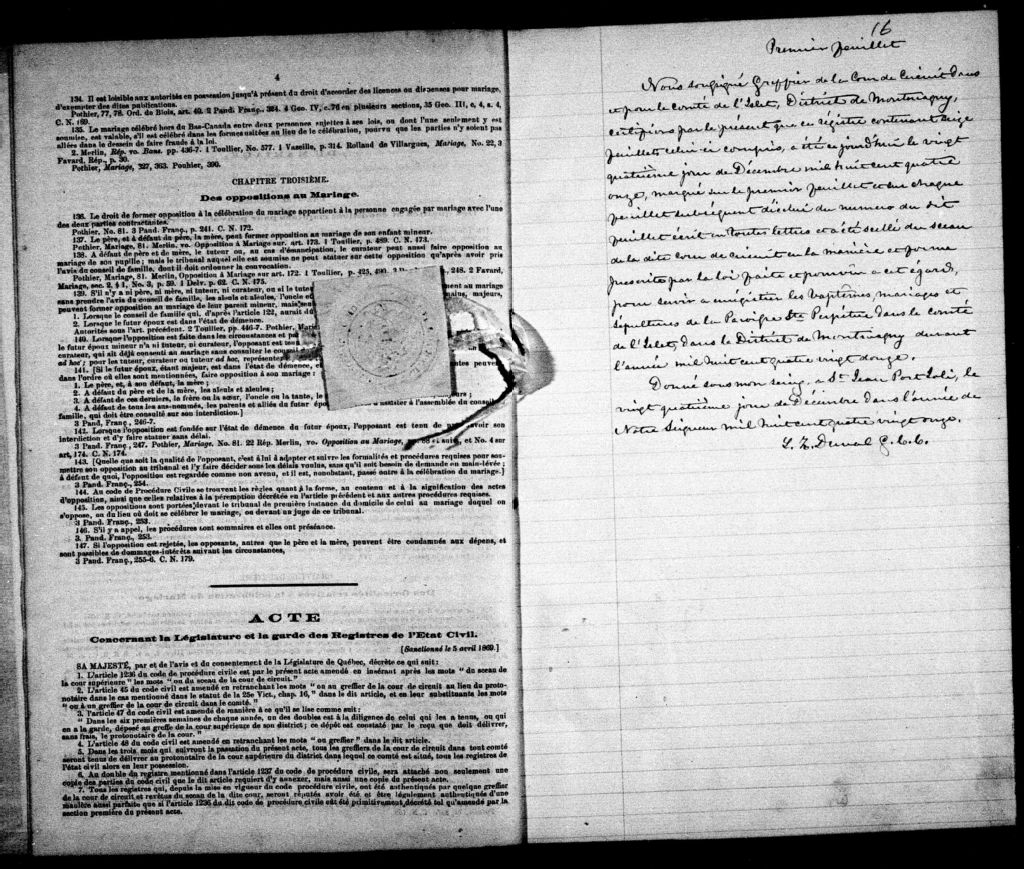 4
134. Il est loisible aux autorités en possession jusqu'à présent du droit d'accorder des licences ou dispenses pour mariage,
d'exempter des dites publications.
Pothier, 77, 78. Ord. de Blois, art. 40. 2 Pand. Franç., 364. 4 Geo. IV, c. 76 en plusieurs sections, 35 Geo. III, c. 4, s. 4,
C. N. 169.
135. Le mariage célébré hors du Bas-Canada entre deux personnes sujettes à ses lois, ou dont l'une seulement y est
soumise, est valable, s'il est célébré dans les formes usitées au lieu de la célébration, pourvu que les parties n'y soient pas
allées dans le dessein de faire fraude à la loi.
2. Merlin, Rép. vo. Bans. pp. 436-7. 1 Toullier, No. 577. 1 Vazeille, p. 314. Rolland de Villargues, Mariage, No. 22, 3
Favard, Rép., p. 30.
Pothier, Mariage, 327, 363. Pouhier, 390.
CHAPITRE TROISIÈME.
Des oppositions au Mariage.
136. Le droit de former opposition à la célébration du mariage appartient à la personne engagée par mariage avec l'une
des deux parties contractantes.
Pothier, No. 81. 3 Pand. Franç., p. 241. C. N. 172.
137. Le père, et à défaut du père, la mère, peut former opposition au mariage de son enfant mineur.
Pothier, Mariage, 81. Merlin, vo. Opposition à Mariage sur. art. 173. 1 Toullier, p. 489. C. N. 173.
138. A défaut de père et de mère, le tuteur ou, au cas d'émancipation, le curateur peut aussi faire opposition au
mariage de son pupille; mais le tribunal auquel elle est soumise ne peut statuer sur cette opposition qu'après avoir pris
l'avis du conseil de famille, dont il doit ordonner la convocation.
Pothier, Mariage, 81. Merlin, Opposition à Mariage sur art. 172. 1 Toullier, p. 425, 490. 248. 2 Favard,
Mariage, sec. 2, § 1, No. 3, p. 59. 1 Delv. p. 62. C. N. 175.
139. S'il n'y a ni père, ni mère, ni tuteur, ni curateur, ou si le tuteur ment au mariage
sans prendre l'avis du conseil de famille, les aïeuls et aïeules, l'oncle et mains, majeurs,
peuvent former opposition au mariage de leur parent mineur, mais
1. Lorsque le conseil de famille qui, d'après l'article 122, aurait dû
2. Lorsque le futur époux est dans l'état de démence.
Autorités sous l'art. précédent. 2 Toullier, pp. 446-7. Pothier, Mari
140. Lorsque l'opposition est faite dans les circonstances et
le futur époux mineur n'a ni tuteur, ni curateur, l'opposant est tenu
curateur, qui ait déjà consenti au mariage sans consulter le conseil
ad hoc; pour les tuteur, curateur ou tuteur ad hoc, représenter
141. [Si le futur époux, étant majeur, est dans l'état de démence, et
dans l'ordre où elles sont mentionnées, faire opposition à son mariage:
1. Le père, et, à son défaut, la mère;
2. A défaut du père et de la mère, les aïeuls et aïeules;
3. A défaut de ces derniers, le frère ou la sœur, l'oncle ou la tante, le
4. A défaut de tous les sus-nommés, les parents et alliés du futur époux assister à l'assemblée du conseil de
famille, qui doit être consulté sur son interdiction.]
3 Pand. Franç., 246-7.
142. Lorsque l'opposition est fondée sur l'état de démence du futur époux, l'opposant est tenu de avoir son
interdiction et d'y faire statuer sans délai.
3 Pand. Franç., 247. Pothier, Mariage, No. 81. 22 Rép. Merlin, vo. Opposition au Mariage, et No. 4 sur
art. 174. C. N. 174.
143. [Quelle que soit la qualité de l'opposant, c'est à lui à adopter et suivre les formalités et procédures requises pour sou-
mettre son opposition au tribunal et l'y faire décider sous les délais voulus, sans qu'il soit besoin de demande en main-levée;
à défaut de quoi, l'opposition est regardée comme non avenu, et il est, nonobstant, passé outre à la célébration du mariage.]
3 Pand. Franç., 254.
144. Au code de Procédure Civile se trouvent les règles quant à la forme, au contenu et à la signification des actes
d'opposition, ainsi que celles relatives à la péremption décrétée en l'article précédent et aux autres procédures requises.
145. Les oppositions sont portées devant le tribunal de première instance du domicile de celui au mariage duquel on
s'oppose, ou du lieu où doit se célébrer le mariage, ou devant un juge de ce tribunal.
3 Pand. Franç., 253.
146. S'il y a appel, les procédures sont sommaires et elles ont préséance.
3. Pand. Franç., 253.
147. Si l'opposition est rejetée, les opposants, autres que le père et la mère, peuvent être condamnés aux dépens, et
sont passibles de dommages-intérêts suivant les circonstances,
3 Pand. Franç., 255-6. C. N. 179.
ACTE
Concernant la Législature et la garde des Registres de l'Etat Civil.
[Sanctionné le 5 avril 1869.]
SA MAJESTÉ, par et de l'avis et du consentement de la Législature de Québec, décrète ce qui suit:
1. L'article 1236 du code de procédure civile est par le présent acte amendé en insérant après les mots "du sceau de
la cour supérieure" les mots "ou du sceau de la cour de circuit."
2. L'article 45 du code civil est amendé en retranchant les mots "ou au greffier de la cour de circuit au lieu du proto-
notaire dans le cas mentionné dans le statut de la 25e Vict., chap. 16," dans le dit article, et en leur substituants les mots
"ou à un greffier de la cour de circuit dans le comté."
3. l'article 47 du code civil est amendé de manière à ce qu'il se lise comme suit:
"Dans les six premières semaines de chaque année, un des doubles est à la diligence de celui qui les a tenus, ou qui
en a la garde, déposé au greffe de la cour supérieure de son district; ce dépôt est constaté par le reçu que doit délivrer,
sans frais, le protonotaire de la cour."
4. L'article 48 du code civil est amendé en retranchant les mots "ou greffier" dans le dit article.
5. Dans les trois mois qui suivront la passation du présent acte, tous les greffiers de la cour de circuit dans tout comté
seront tenus de délivrer au protonotaire de la cour supérieure du district dans lequel ce comté est situé, tous les registres de
l'état civil alors en leur possession.
6. Au double du registre mentionné dans l'article 1237 du code de procédure civile, sera attaché non seulement une
copie des parties du code civil que le dit article requiert d'y annexer, mais aussi une copie du présent acte.
7. Tous les registres qui, depuis la mise en vigueur du code procédure civile, ont été authentiqués par quelque greffier
de la cour de circuit et revêtus du sceau de la dite cour, seront réputés avoir été et être légalement authentiqués d'une
manière aussi parfaite que si l'article 1236 du dit code de procédure civile eût été primitivement décrété tel qu'amendé par la
section première du présent acte.
16
Premier feuillet
Nous soussigné Greffier de la Cour de Circuit dans
et pour le comté de l'Islet, District de Montmagny,
certifions par le présent que ce registre contenant seize
feuillets celui-ci compris, a été ce jourd'hui le vingt
quatrième jour de Décembre mil huit cent quatre
onze, marqué sur le premier feuillet et sur chaque
feuillet subséquent d'icelui du numéro du dit
feuillet écrit en toutes lettres et a été scellé du sceau
de la dite cour de circuit en la manière et forme
prescrite par la loi faite et pourvu à cet égard,
pour servir à enrégistrer les baptêmes, mariages et
sépultures de la Paroisse Ste Perpétue dans le comté
de l'Islet, dans le District de Montmagny durant
l'année mil huit cent quatre vingt douze.
Donné sous mon seing, à St Jean Port Joli, le
vingt quatrième jour de Décembre dans l'année de
Notre Seigneur mil huit cent quatre vingt onze.
L. Z. Duval G. C. C.